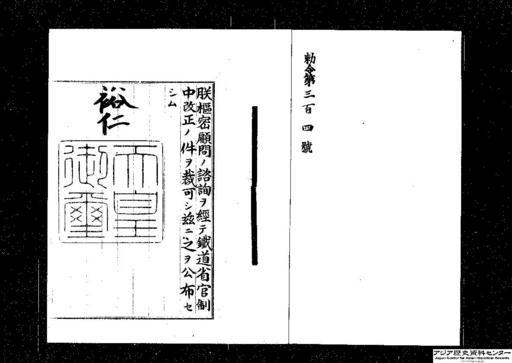 勅令第三百四號
朕樞密顧問ノ諮詢ヲ經テ鐵道省官制
中改正ノ件ヲ裁可シ茲ニ之ヲ公布セ
シム
裕仁
天皇
御璽
アジア歴史資料センター
Japan Center for Asian Historical Records